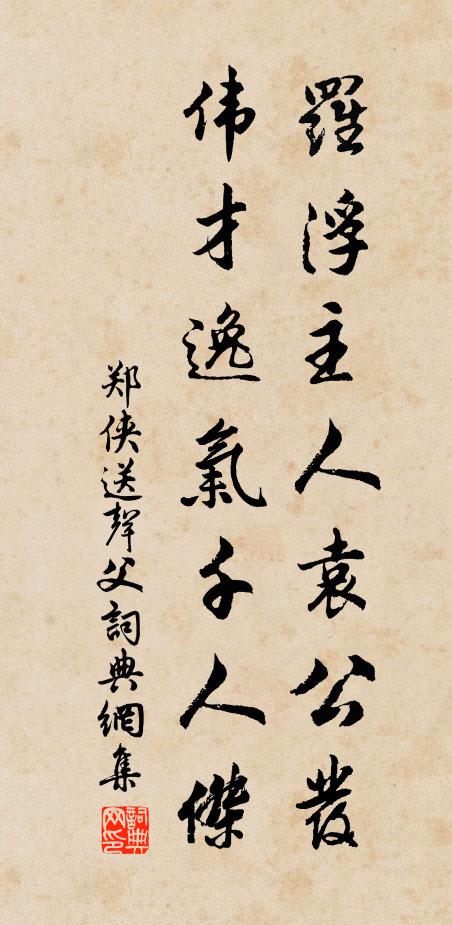 羅浮主人袁公發
伟才逸氣千人傑
郑侠送聲父詞典網集
詞典网印